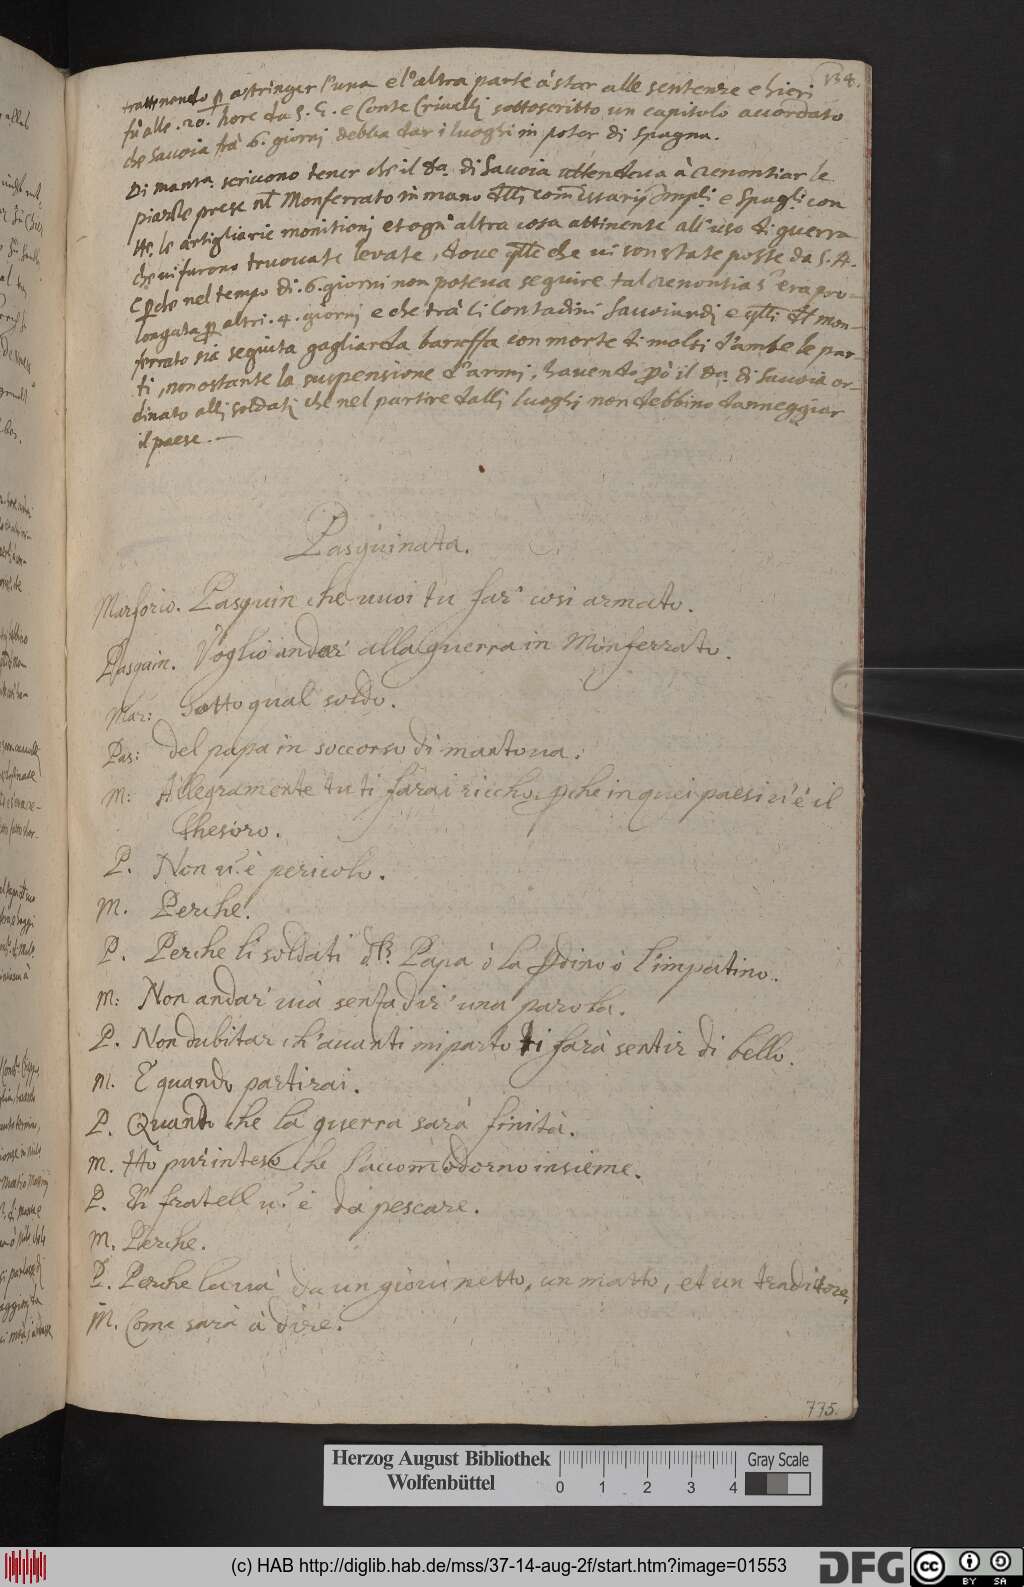 134.
trattenendo p astringer l'una e l'altra parte à star alle sentenze e hieri
fù alle .20. hore da S. E. e Conte Crivelli sottoscritto un capitolo accordato
che Savoia frà 6. giorni debba dar i luoghi in poter di Spagna.
Di Manta. scrivono tener che il Da. di Savoia attendeva à renontiar le
piazze prese nl Monferrato in mano dlli comissarij Impli. e Spagli. con
tte. le artigliarie monitioni et ogn' altra cosa attinente all' uso di guerra
che vi furono truovate levate, dove qlle che vi son state poste da S. A.
e pche nel tempo di .6. giorni non poteva seguire tal renontia s' era pro-
longata p altri .4. giorni e che trà li Contadini Savoiardi e qlli dl mon-
ferrato sia seguita gagliarda baruffa con morte di molti d'ambe le par-
ti, nonostante la suspensione d'armi, havendo pò il Da. di Savoia or-
dinato alli soldati che nel partire dalli luoghi non debbino danneggiar
il paese. —
Pasquinata.
Marforio. Pasquin che vuoi tu far' cosi armato.
Pasquin. Voglio andar' alla guerra in Monferrato.
Mar: Sotto qual soldo.
Pas: del papa in soccorso di mantova.
M: Allegramente tu ti farai riccho, pche in quei paesi v'è il
thesoro.
P. Non v'è pericolo.
M. Perche.
P. Perche li soldati dl Papa ò la pdino ò l'impatino.
M: Non andar' via senza dir' una parola.
P. Non dubitar ch'avanti mi parto ti farà sentir di bello.
M. E quando partirai.
P. Quando che la guerra sarà finità.
M. Hò pur inteso che s'accomodorno insieme.
P. Eh fratell v'è da pescare.
M. Perche.
P. Perche la và da un giovinetto, un matto, et un traditore.
M. Come sarà à dire.
775.
Herzog August Bibliothek
Wolfenbüttel
0 1 2 3 4
Gray Scale
(c) HAB http://diglib.hab.de/mss/37-14-aug-2f/start.htm?image=01553
DFG
cc BY SA